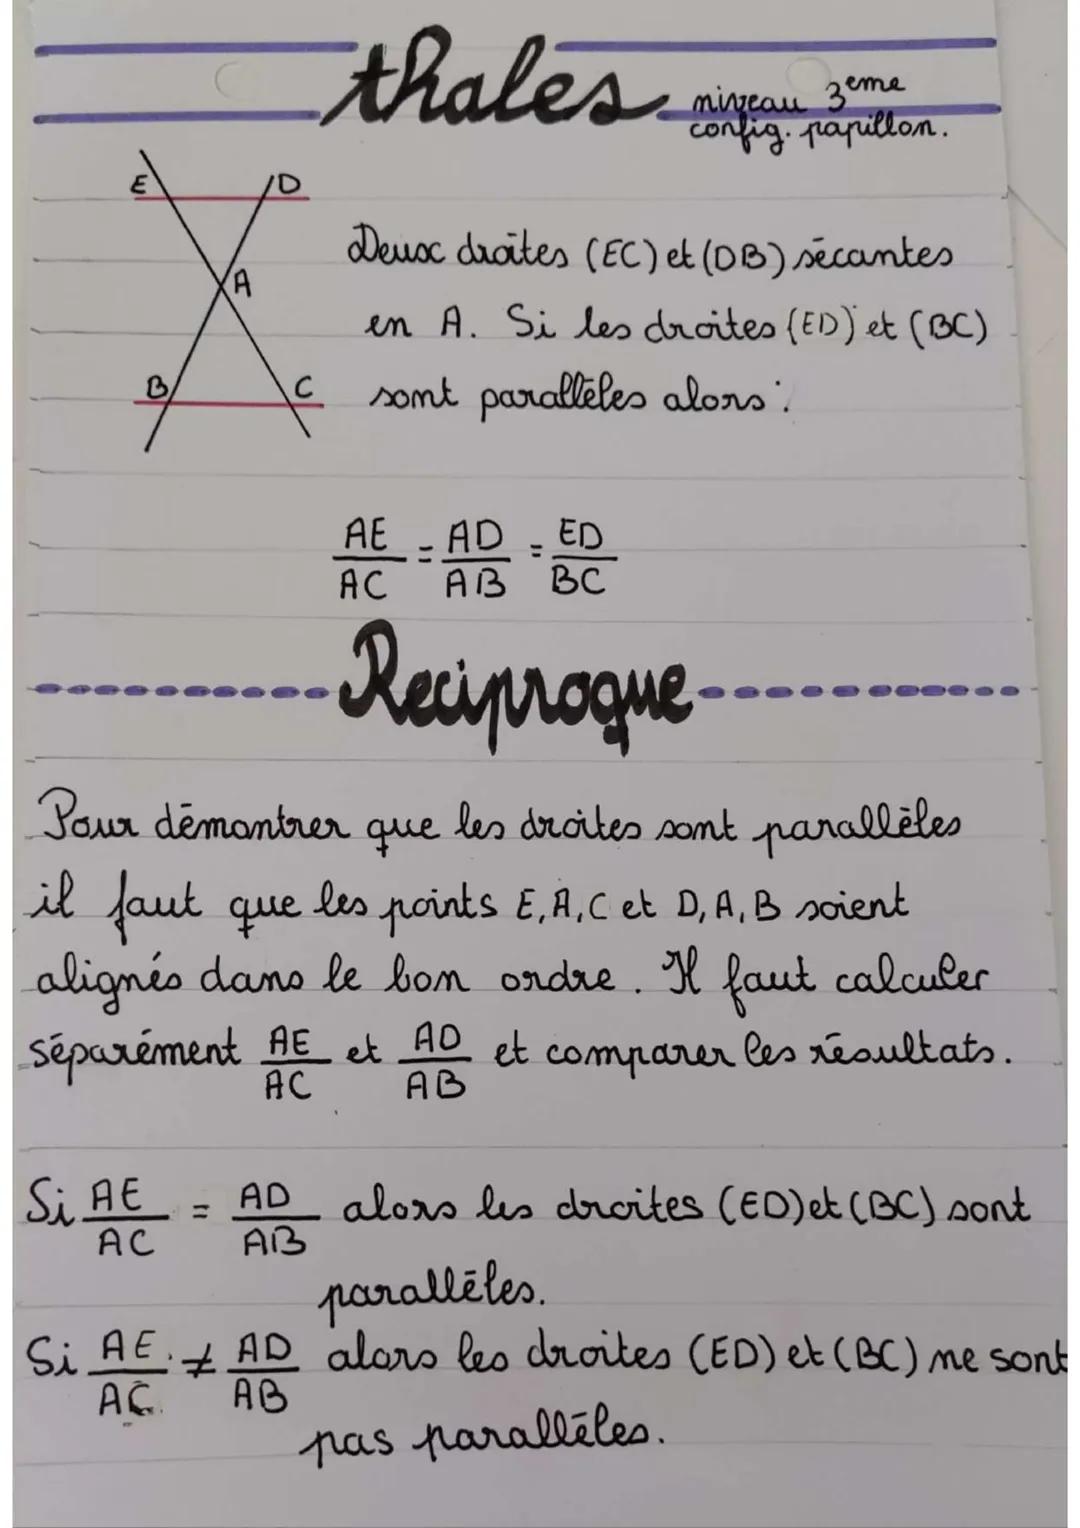 thales niveau 3eme
config. papillon.
E D
A
B C
Deux droites (EC) et (DB) sécantes
en A. Si les droites (ED) et (BC)
sont parallèles alors :
AE/AC = AD/AB = ED/BC
Reciproque
Pour démontrer que les droites sont parallèles
il faut que les points E, A, C et D, A, B soient
alignés dans le bon ordre. Il faut calculer
séparément AE/AC et AD/AB et comparer les résultats.
Si AE/AC = AD/AB alors les droites (ED) et (BC) sont
parallèles.
Si AE/AC ≠ AD/AB alors les droites (ED) et (BC) ne sont
pas parallèles.